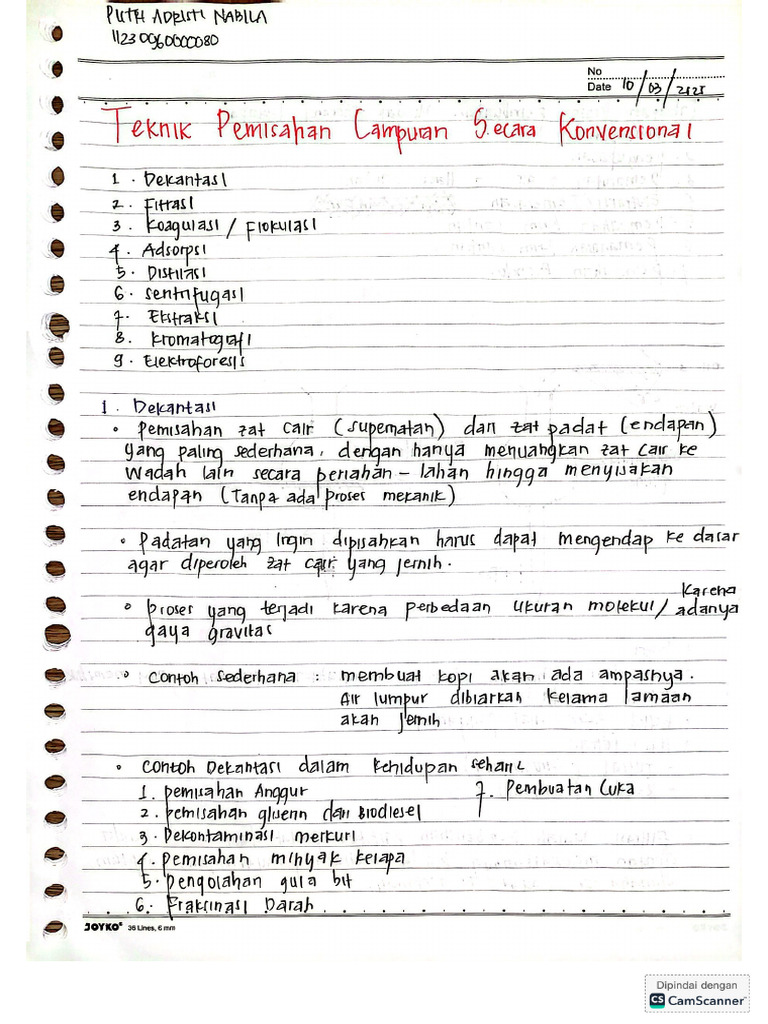 PUTRI ADRISTI NABILA
11230960000080
No
Date 10/03/2025
Teknik Pemisahan Campuran Secara Konvensional
1. Dekantasi
2. Filtrasi
3. Koagulasi / Flokulasi
4. Adsorpsi
5. Distilasi
6. Sentrifugasi
7. Ekstraksi
8. Kromatografi
9. Elektroforesis
1. Dekantasi
• Pemisahan zat cair (supernatan) dan zat padat (endapan)
yang paling sederhana, dengan hanya menuangkan zat cair ke
wadah lain secara perlahan-lahan hingga menyisakan
endapan (Tanpa ada proses mekanik)
• Padatan yang ingin dipisahkan harus dapat mengendap ke dasar
agar diperoleh zat cair yang jernih.
• Proses yang terjadi karena perbedaan ukuran molekul / karena adanya
gaya gravitas
• Contoh sederhana : membuat kopi akan ada ampasnya.
Air lumpur dibiarkan kelama lamaan
akan jernih
• Contoh Dekantasi dalam kehidupan sehari2
1. pemisahan Anggur 7. Pembuatan Cuka
2. pemisahan gliserin dari Biodiesel
3. Dekontaminasi merkuri
4. pemisahan minyak kelapa
5. pengolahan gula bit
6. Fraksinasi Darah
JOYKO 36 Lines, 6 mm
Dipindai dengan
CS CamScanner